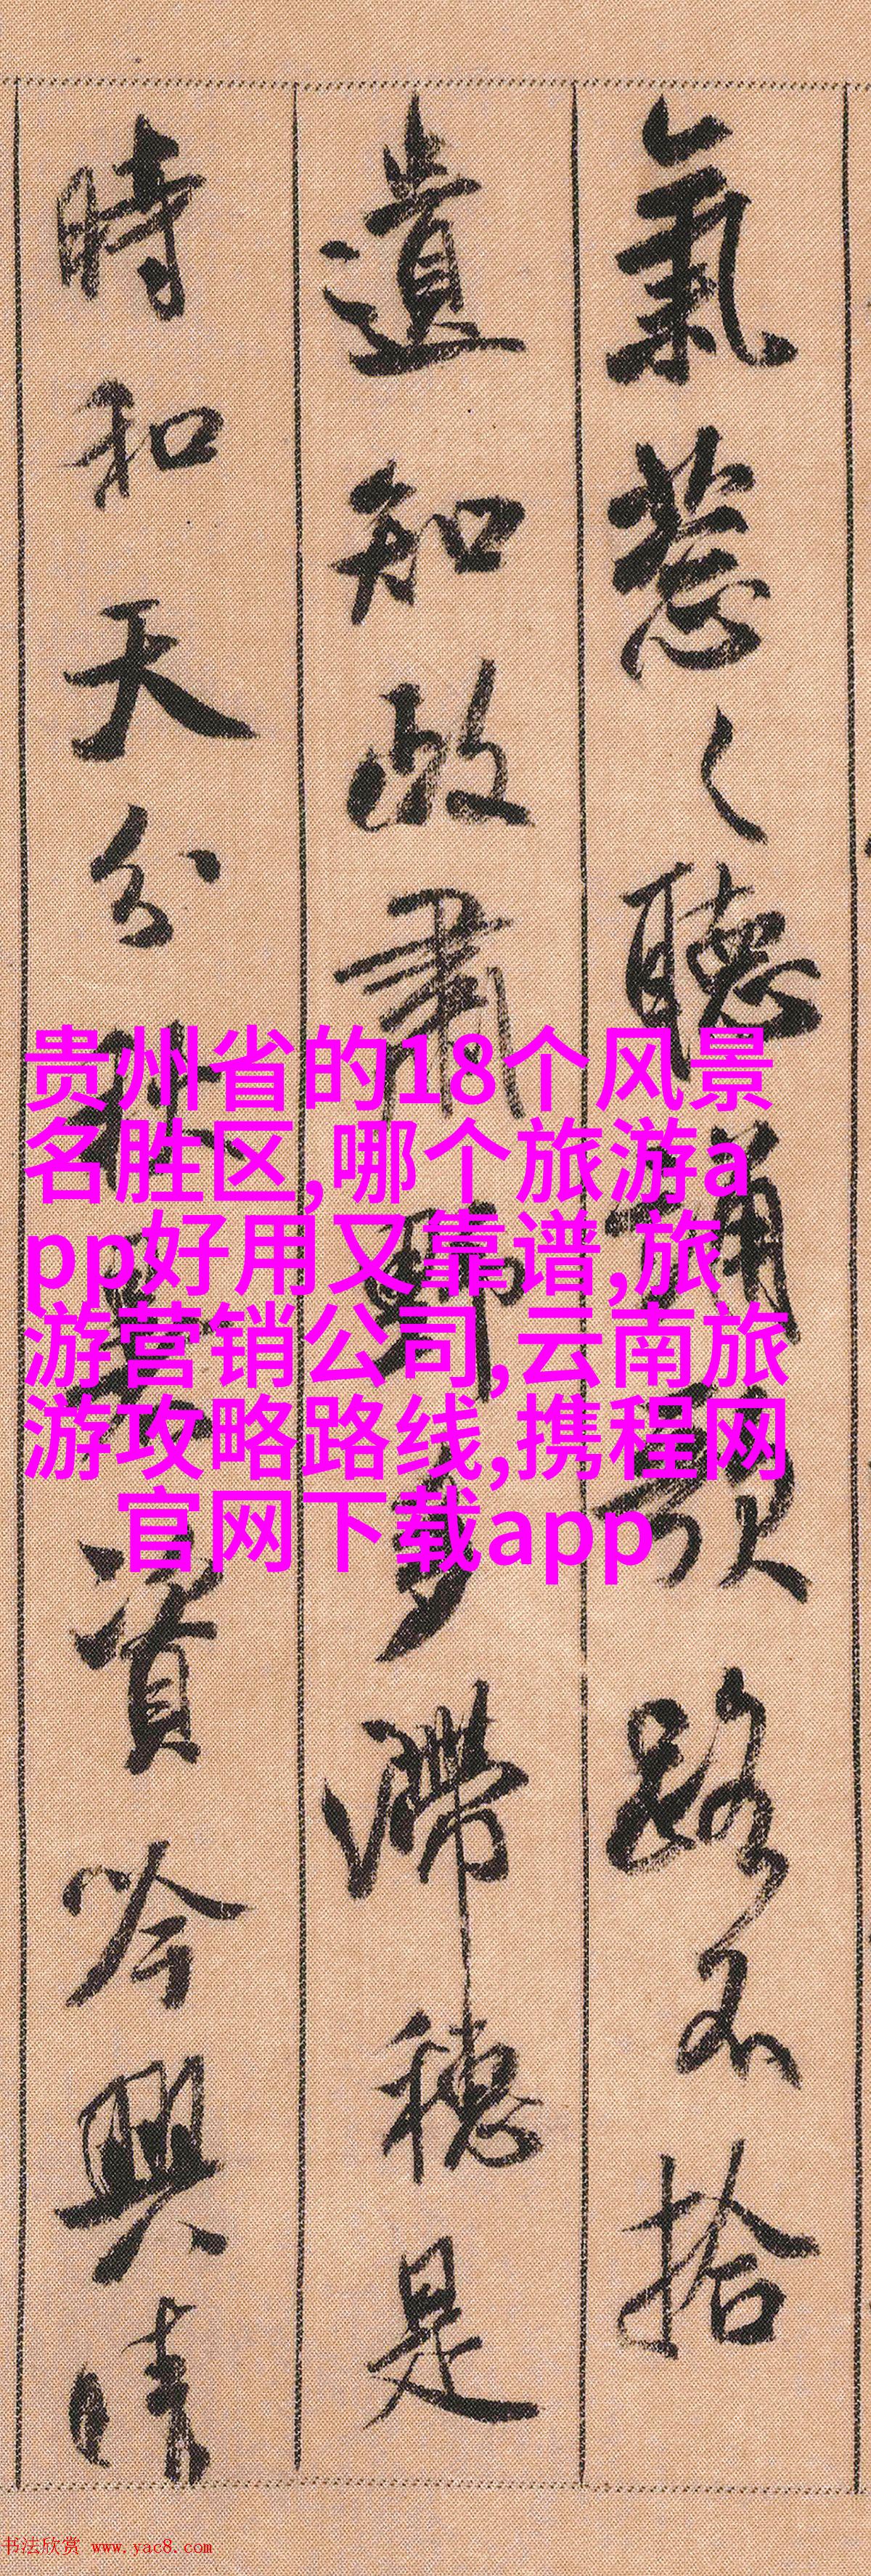 氣葱〻聽誦歌路不拾
遺知政肅野多滯穗是
時和天分秋暑資吟興晴
贵州省的18个风景
名胜区,哪个旅游a
pp好用又靠谱,旅
游营销公司,云南旅
游攻略路线,携程网
官网下载app
书法欣赏 www.yac8.com